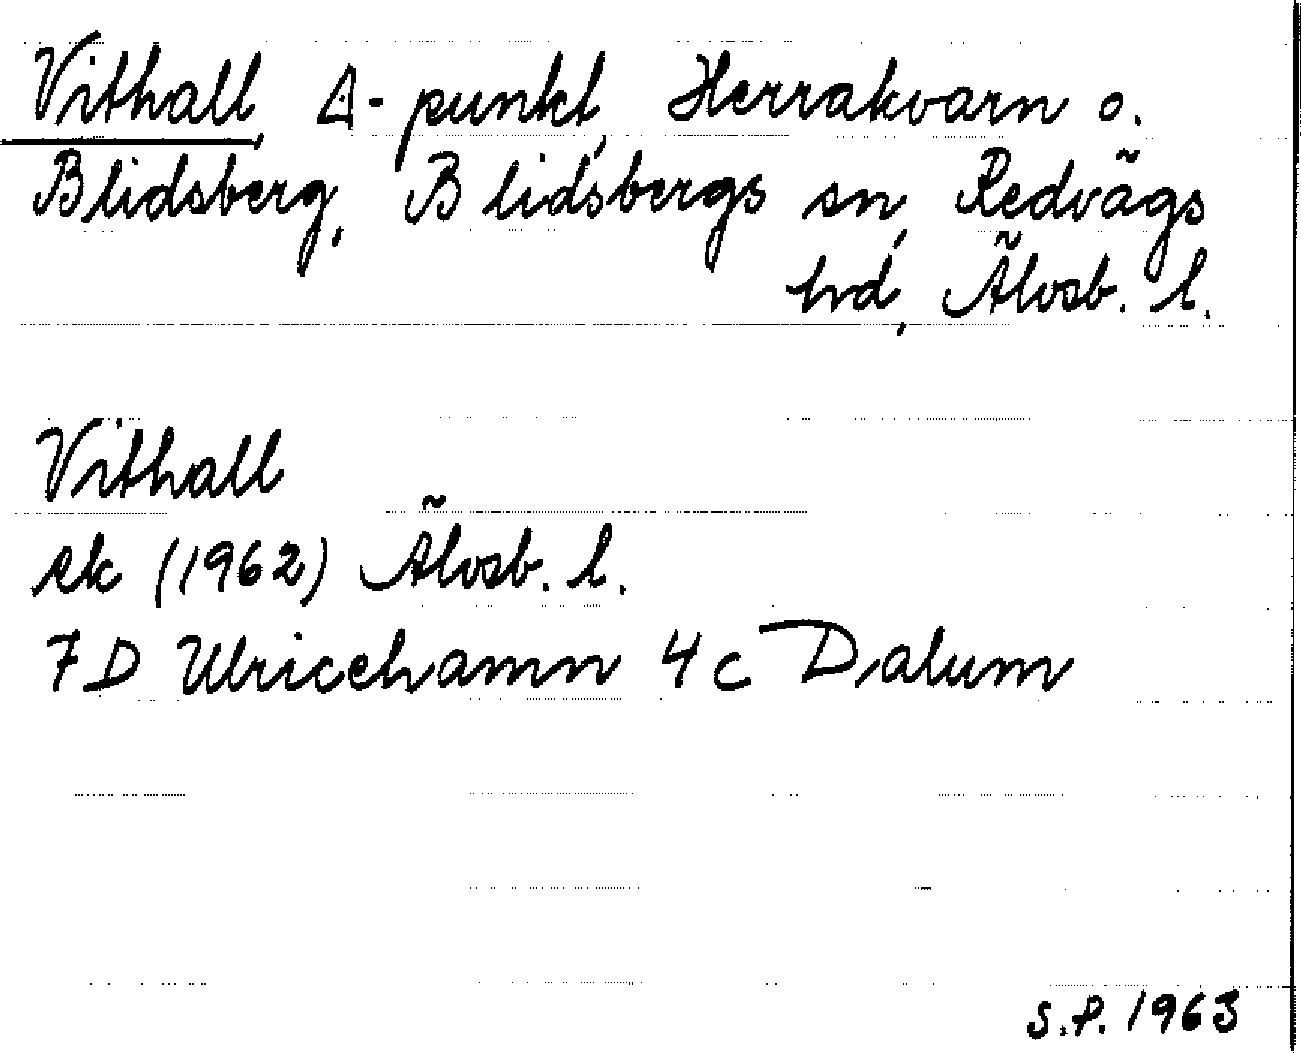 Vithall, Δ-punkt, Herrakvarn o.
Blidsberg, Blidsbergs sn, Redvägs
hd, Älvsb. l.
Vithall
ek (1962) Älvsb. l.
7D Ulricehamn 4c Dalum
S.P. 1963